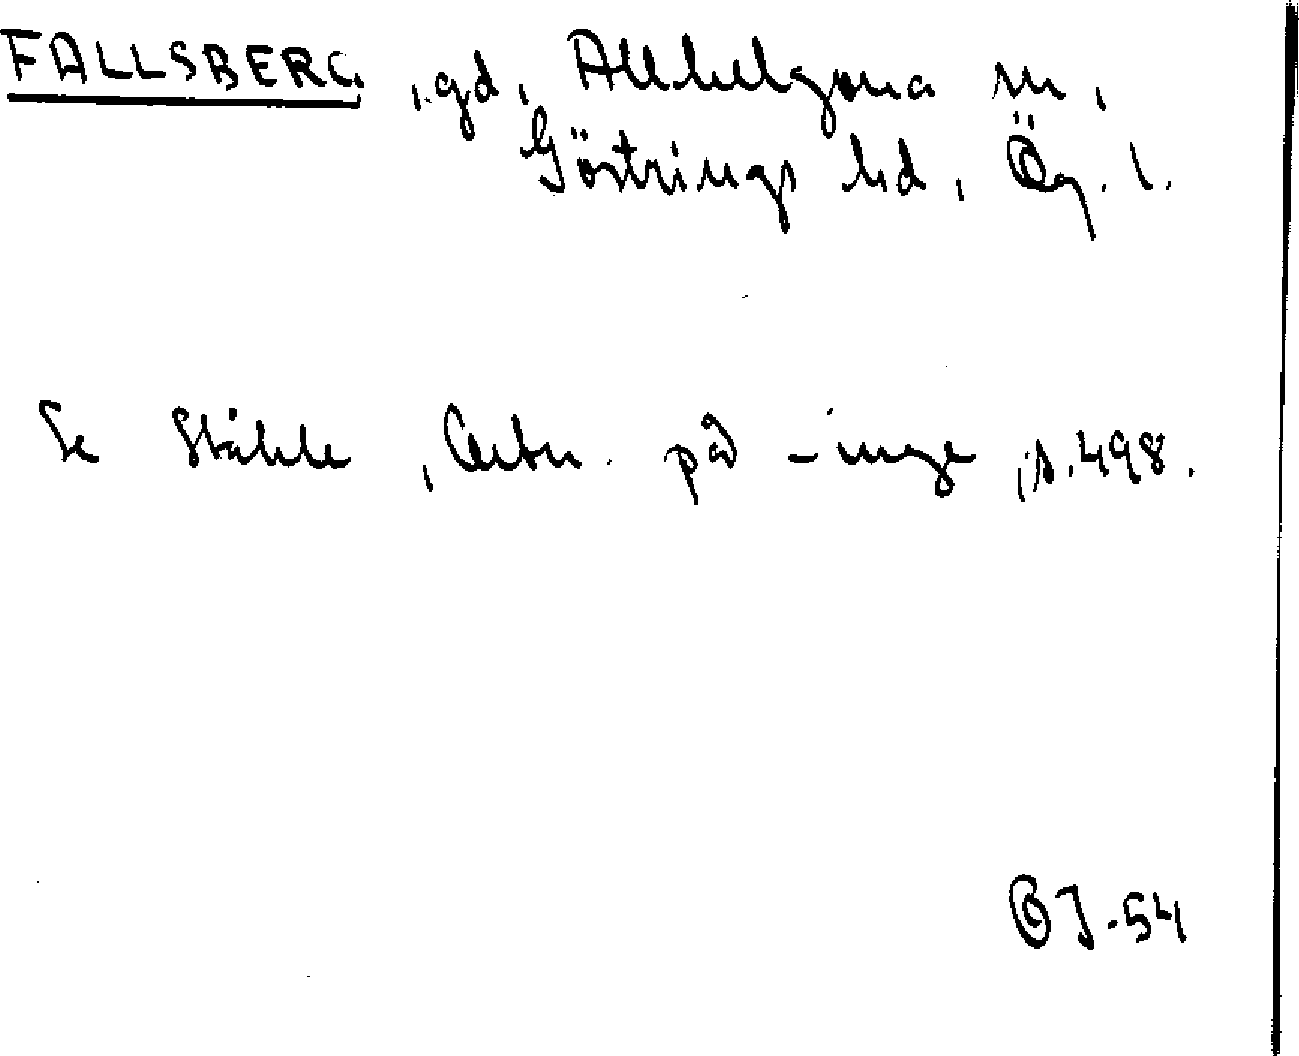 FALLSBERG, gd, Allhelgona sn,
Göstrings hd, Ög. l.
Se Ståhle, Ortn. på -inge, s. 498.
J-54